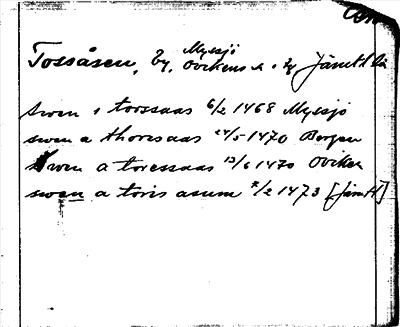 Tossåsen, by, Myssjö Ovikens s. o. tg Jämtl. län
swen i torssaas 6/2 1468 Myssjö
swen a thoresaas 24/5 1470 Bergen
swen a toressaas 13/6 1470 Oviken
swen a toris asum 7/2 1473 [Jämtl]